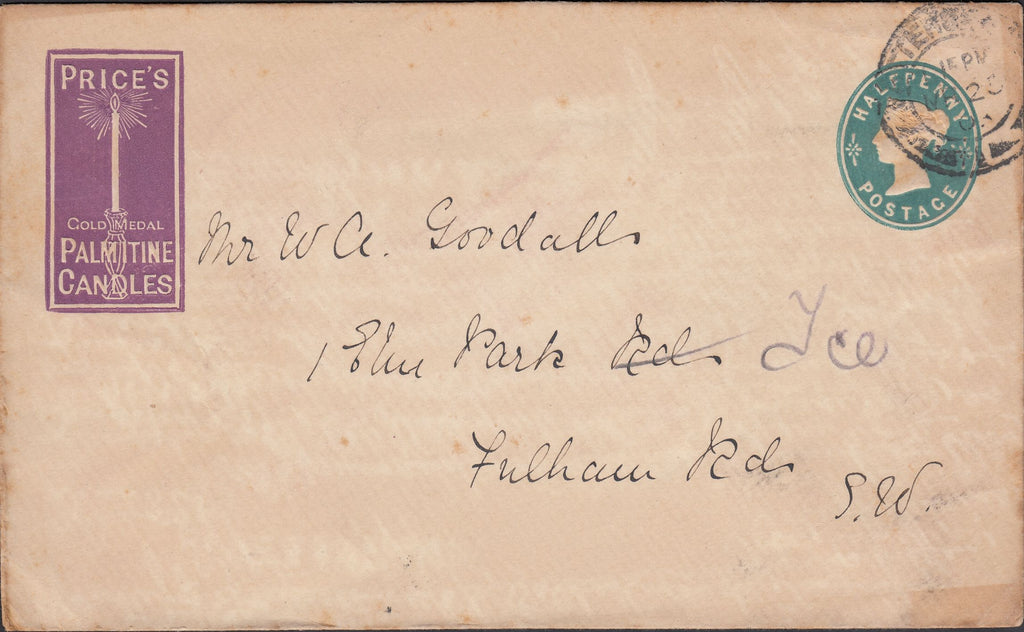 PRICE'S
GOLD MEDAL
PALMITINE
CANDLES
HALFPENNY
POSTAGE
15 PM
20
Mr W A. Goodalls
1 Elm Park Rd Tce
Fulham Rd
S.W.